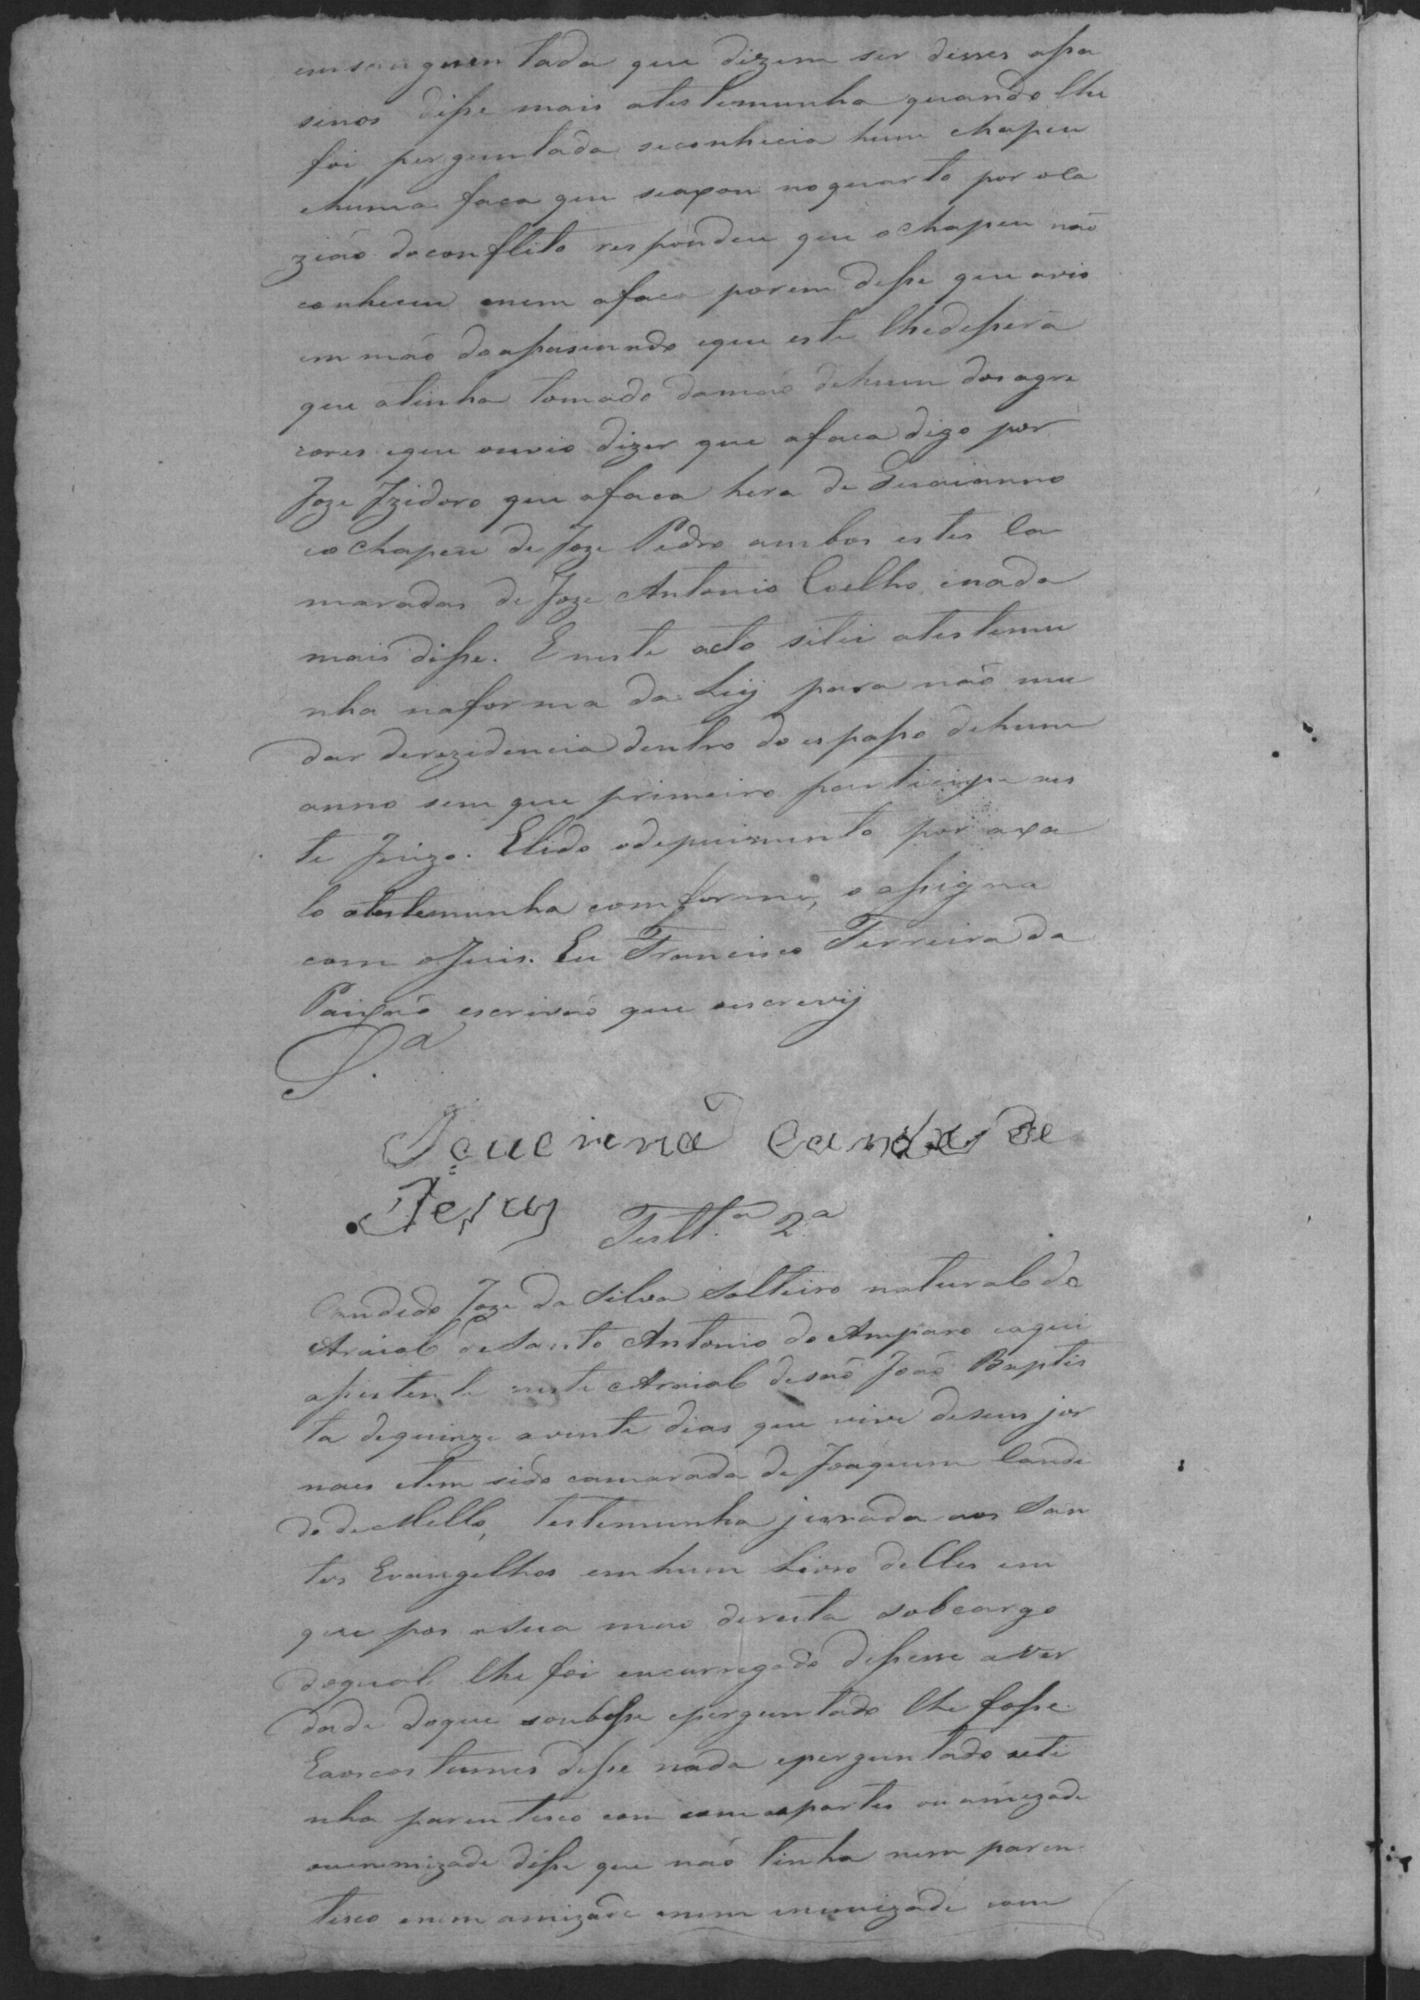 ensanguentada que dizem ser desses aſsa
sinos diſse mais atestemunha quando lhe
foi perguntada seconhecia hum chapeu
ehuma faca que seaxou noquarto por oca
zião doconflito respondeu que ochapeu não
conheceu enem afaca porem diſse que avio
em mão doaſsasinado eque este lhediſsera
que atinha tomado damão dehum dos agre
sores eque ouvio dizer que afaca digo por
Joze Izidoro que afaca hera de
eochapeu de Joze Pedro ambos estes Ca
maradas de Joze Antonio Coelho, enada
mais diſse. E neste acto sitei atestemu
nha naforma da Leij para não mu
dar derezidencia dentro do espaſso dehum
anno sem que primeiro participe nes
te Juizo. Elido odepuimento por axa
lo atestemunha comforme, o aſsigna
com oJuis. Eu Francisco Ferreira da
Paixão escrivão que oescrevij
S.ª
de
Jesus
Testt.ª 2.ª
Candido Joze da Silva Solteiro natural do
Arraial deSanto Antonio do Amparo eaqui
aſsistente neste Arraial desão João Baptis
ta dequinze avinte dias que vive deseus jor
naes etem sido camarada de Joaquim Candi
do deMello, Testemunha jurada aos San
tos Evangelhos emhum Livro delles em
que pos asua mão direita sobcargo
doqual lhe foi encarregado diſsesse aver
dade doque soubeſse eperguntado lhe foſse.
Eaoscostumes diſse nada eperguntado seti
nha parentesco com com aspartes ou amizade
ouenemizade diſse que não tinha nem paren
tesco enem amizade enem enemizade com